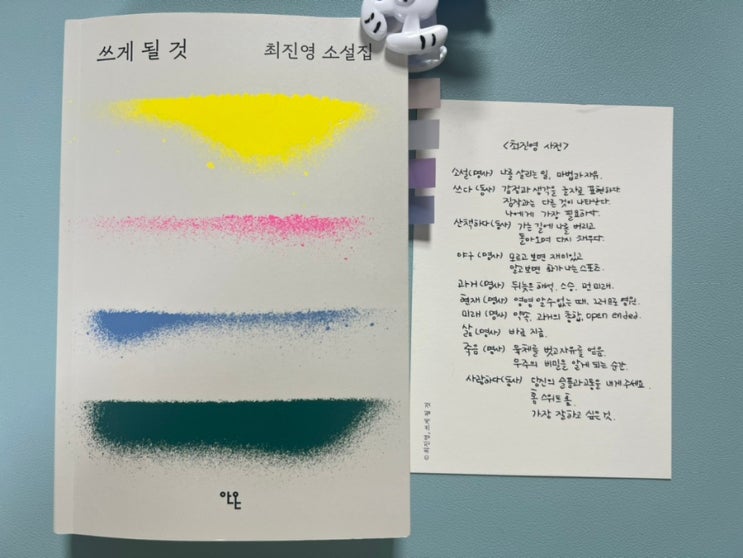 쓰게 될 것
최진영 소설집
안온
<최진영 사전>
소설(명사) 나를 살리는 일, 마법과 자유.
쓰다(동사) 감정과 생각을 글자로 표현하다
짐작과는 다른 것이 나타난다.
나에게 가장 필요하다.
산책하다(동사) 가는 길에 나를 버리고
돌아오며 다시 채우다.
야구(명사) 모르고 보면 재미있고
알고 보면 화가 나는 스포츠.
과거(명사) 뒤늦은 해석, 스승, 먼 미래.
현재(명사) 영영 알 수 없는 때, 그러므로 영원.
미래(명사) 약속, 과거의 종합, open ended.
삶(명사) 바로 지금.
죽음(명사) 육체를 벗고 자유를 얻음.
우주의 비밀을 알게 되는 순간.
사랑하다(동사) 당신의 슬픔과 고통을 내게 주세요.
홈 스위트 홈.
가장 잘하고 싶은 것.
©최진영, 쓰게 될 것